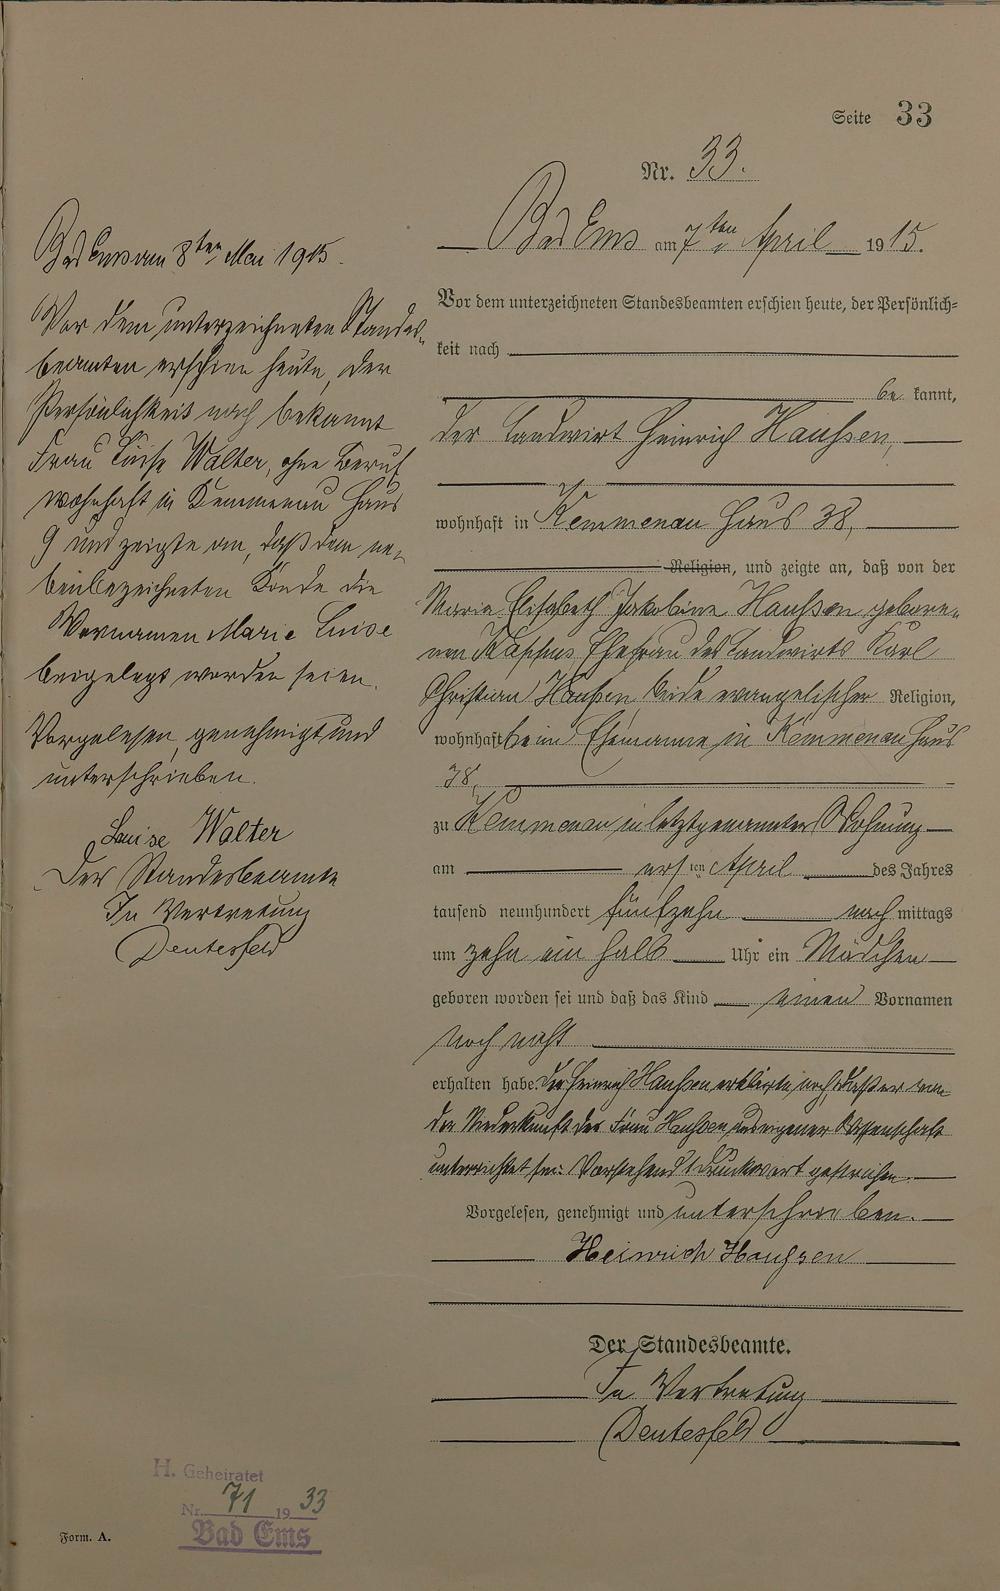 Seite 33
Nr. 33.
Bad Ems am 7ten April 1915.
Vor dem unterzeichneten Standesbeamten erschien heute, der Persönlich=
keit nach
be kannt,
der Landwirt Heinrich Haußen,
wohnhaft in Kemmenau Haus 38,
Religion, und zeigte an, daß von der
Maria Elisabeth Jakobine Haußen gebore-
nen Ehefrau des Landwirts Karl
Christian Haußen, beide evangelischer Religion,
wohnhaft beim Ehemanne in Kemmenau Haus
38,
zu Kemmenau in letztgenannter Wohnung
am ersten April des Jahres
tausend neunhundert fünfzehn nach mittags
um zehn ein halb Uhr ein Mädchen
geboren worden sei und daß das Kind einen Vornamen
noch nicht
erhalten habe. Der Heinrich Haußen erklärte noch, daß er von
der Niederkunft der Frau Haußen aus eigener Wissenschaft
unterrichtet sei. Vorstehend 1 Druckwort gestrichen.
Vorgelesen, genehmigt und unterschrieben.
Heinrich Haußen
Der Standesbeamte.
In Vertretung
Deutesfeld
Bad Ems am 8ten Mai 1915.
Vor dem unterzeichneten Standes-
beamten erschien heute, der
Persönlichkeit nach bekannt
Frau Luise Walter, ohne Beruf
wohnhaft in Kemmenau Haus
9 und zeigte an, daß dem ne-
benbezeichneten Kinde die
Vornamen Marie Luise
beigelegt worden seien.
Vorgelesen, genehmigt und
unterschrieben.
Louise Walter
Der Standesbeamte
In Vertretung
Deutesfeld
H. Geheiratet
Nr. 71 1933
Bad Ems
Form. A.